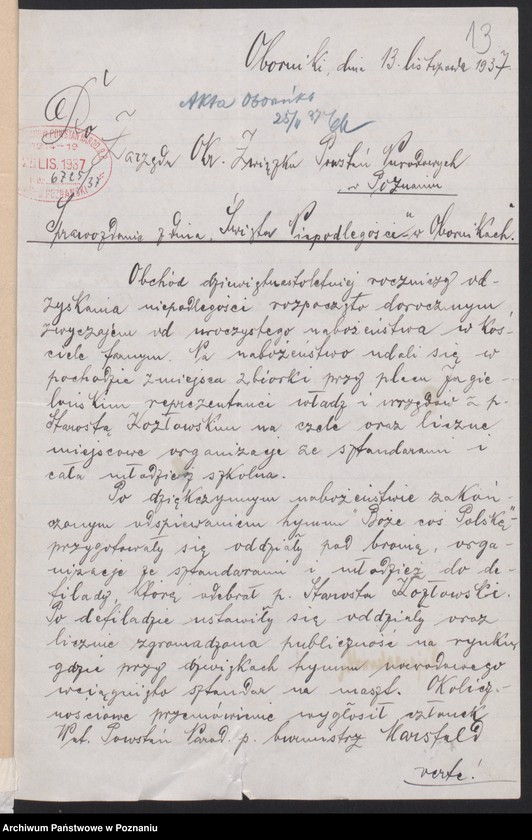 13
Oborniki, dnia 13. listopada 1937
Do
Akta Oborniki
25/11 37
LIS. 1937
L. dz. 6725/37
POZNAŃSKI
Zarządu Okr. Związku Powstań Narodowych
w Poznaniu
Sprawozdanie z dnia „Święta Niepodległości" w Obornikach.
Obchód dziewiętnastoletniej rocznicy od-
zyskania niepodległości rozpoczęto dorocznym
zwyczajem od uroczystego nabożeństwa w koś-
ciele farnym. Na nabożeństwo udali się w
pochodzie z miejsca zbiórki przy placu Jagie-
lońskim reprezentanci władz i urzędów z p.
Starostą Kozłowskim na czele oraz liczne
miejscowe organizacje ze sztandarami i
cała młodzież szkolna.
Po dziękczynnym nabożeństwie zakoń-
czonym odśpiewaniem hymnu „Boże coś Polskę"
przygotowały się oddziały pod bronią, orga-
nizacje ze sztandarami i młodzież do de-
filady, którą odebrał p. Starosta Kozłowski.
Po defiladzie ustawiły się oddziały oraz
licznie zgromadzona publiczność na rynku,
gdzie przy dźwiękach hymnu narodowego
wciągnięto sztandar na maszt. Okolicz-
nościowe przemówienie wygłosił członek
Powstań Narod. p. burmistrz Marsfeld
verte!
Archiwum Państwowe w Poznaniu